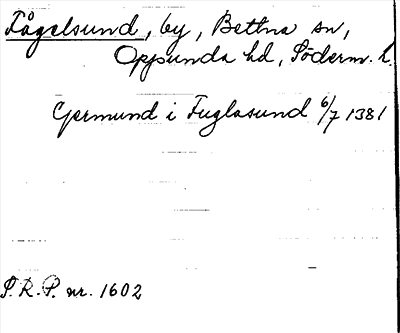 Fågelsund, by, Bettna sn,
Oppunda hd, Söderm. l.
Germund i Fuglasund 6/7 1381
S.R.P. nr. 1602